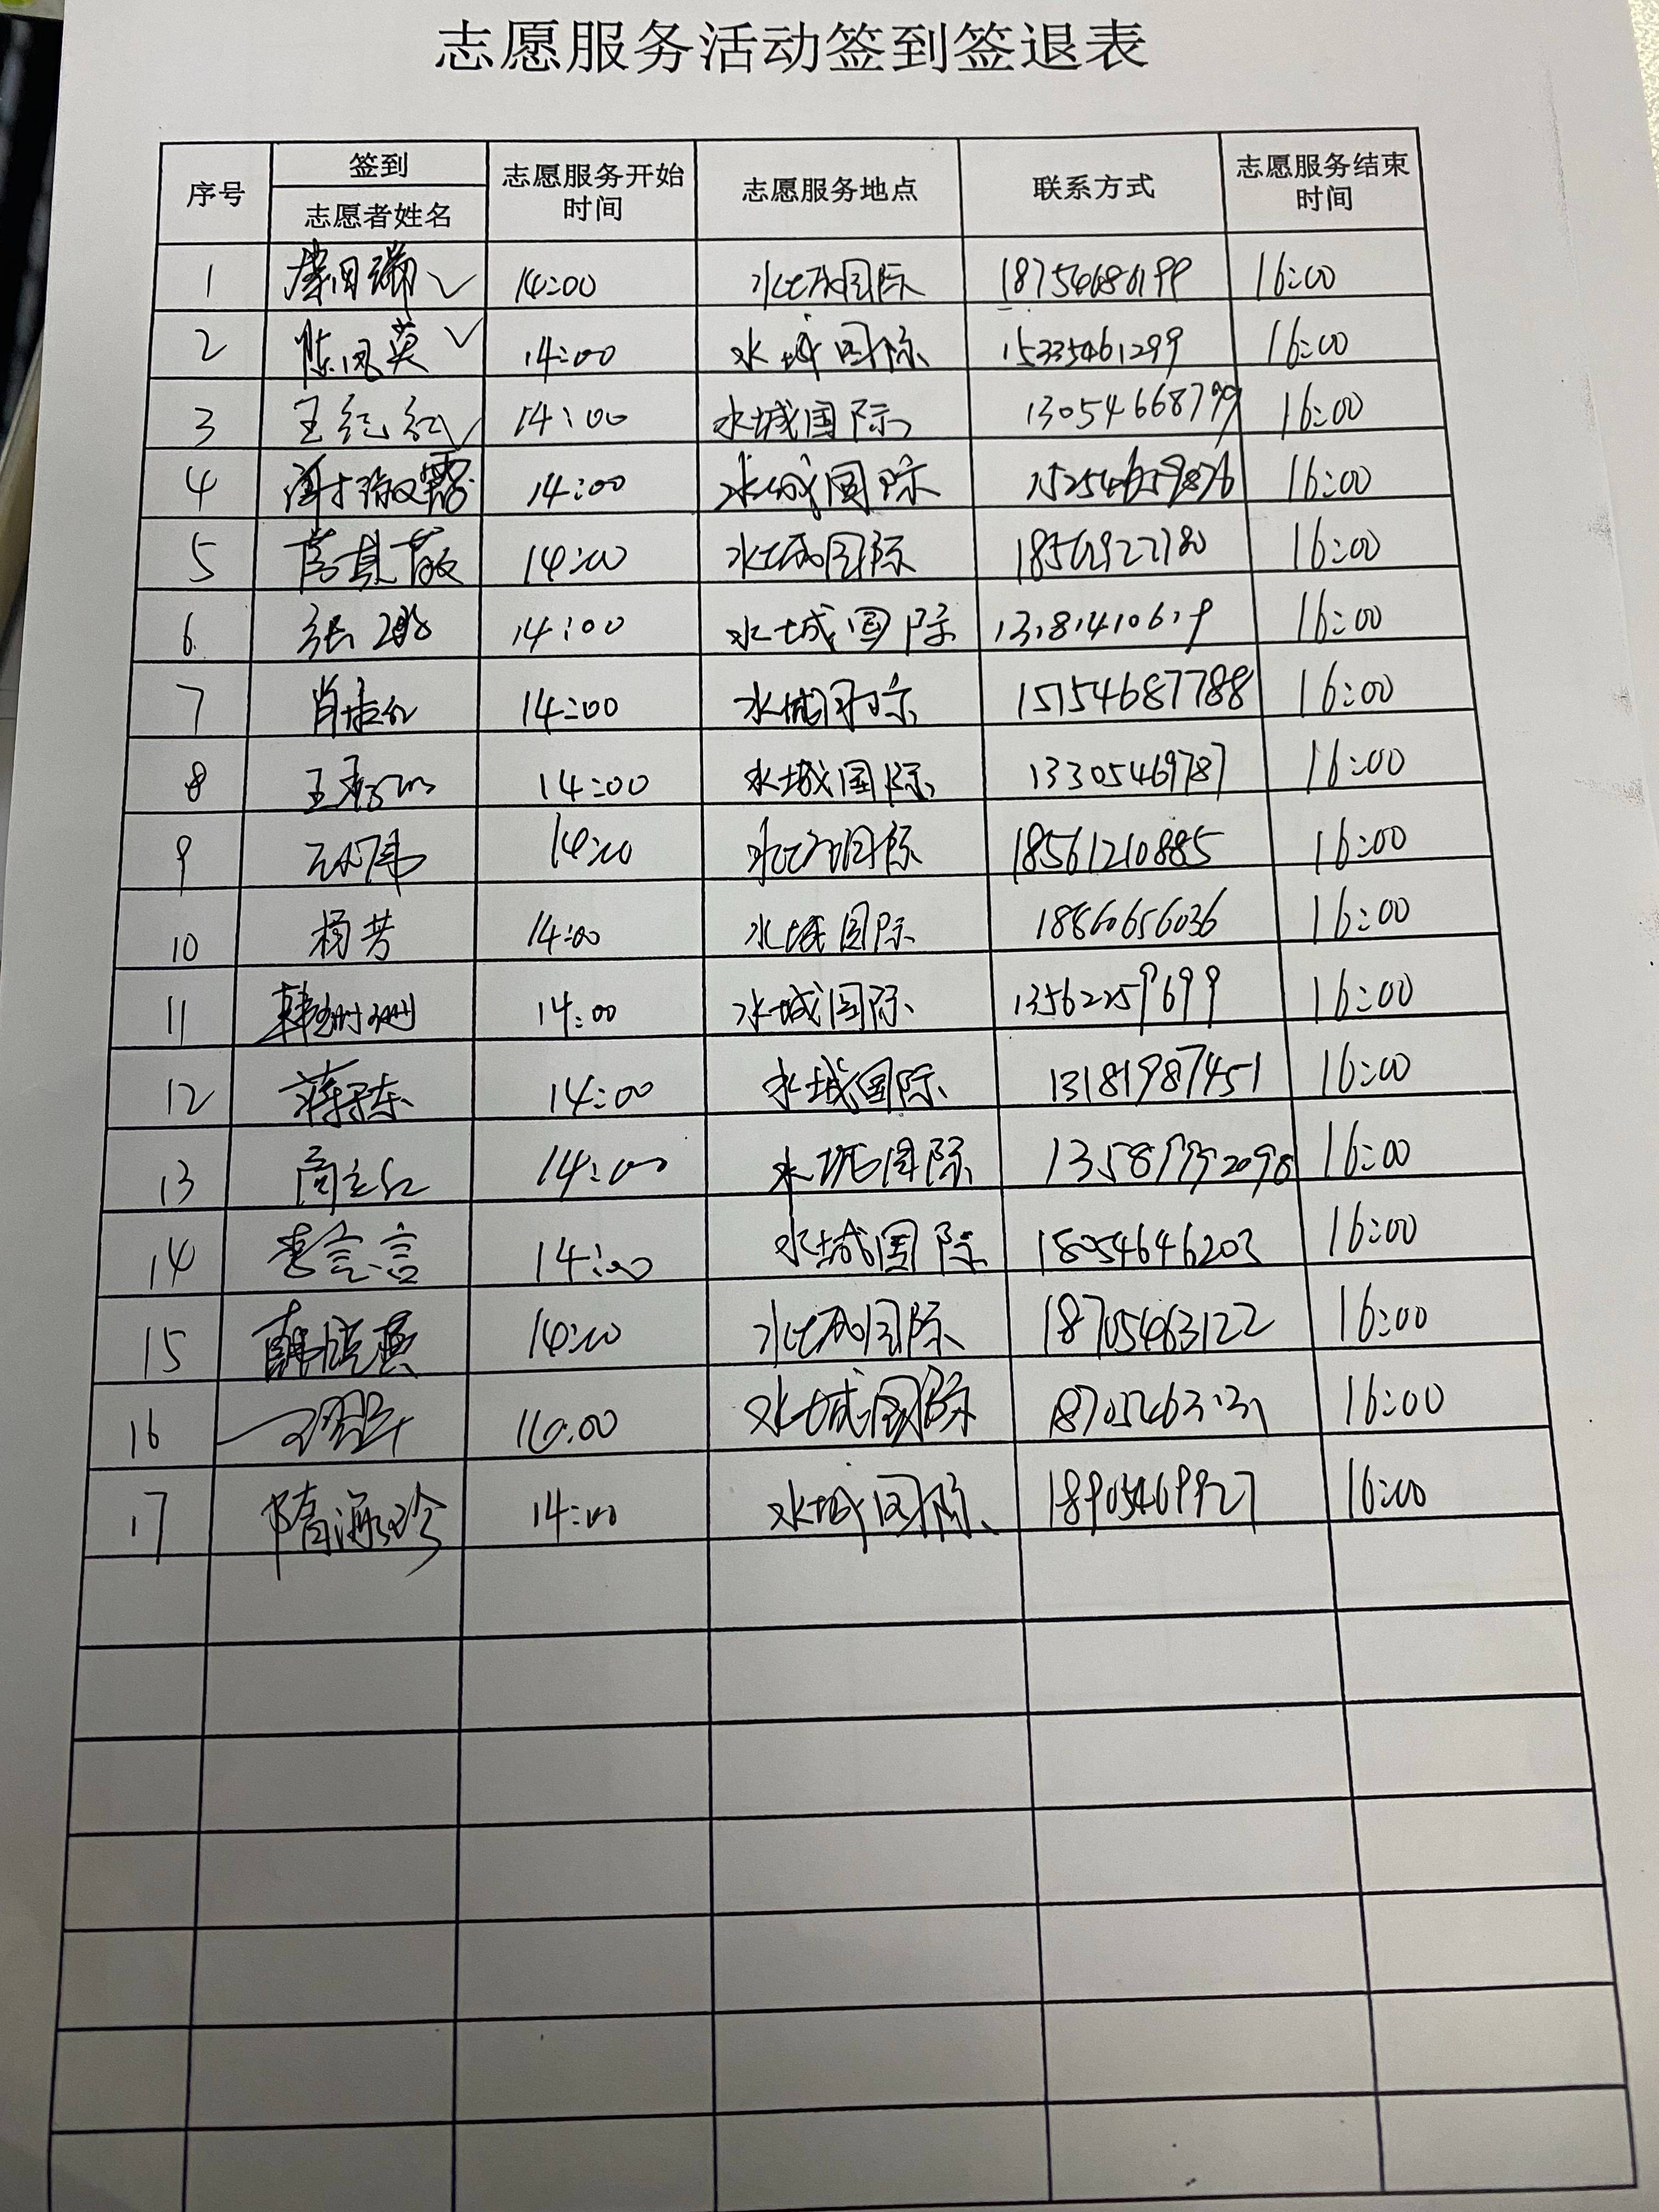 志愿服务活动签到签退表
序号 签到 志愿者姓名 志愿服务开始时间 志愿服务地点 联系方式 志愿服务结束时间
1 14:00 水城国际 18754686199 16:00
2 陈凤英 14:00 水城国际 15335461299 16:00
3 王纪红 14:00 水城国际 13054668799 16:00
4 14:00 水城国际 15254659876 16:00
5 14:00 水城国际 16:00
6 14:00 水城国际 16:00
7 14:00 水城国际 15154687788 16:00
8 14:00 水城国际 13305469787 16:00
9 14:00 水城国际 18561210885 16:00
10 杨芳 14:00 水城国际 18860656036 16:00
11 14:00 水城国际 13562259699 16:00
12 14:00 水城国际 13181987451 16:00
13 14:00 水城国际 13589992098 16:00
14 李言言 14:00 水城国际 18054646203 16:00
15 韩晓燕 14:00 水城国际 18705463122 16:00
16 水城国际 16:00
17 隋海珍 14:00 水城国际 18905469927 16:00